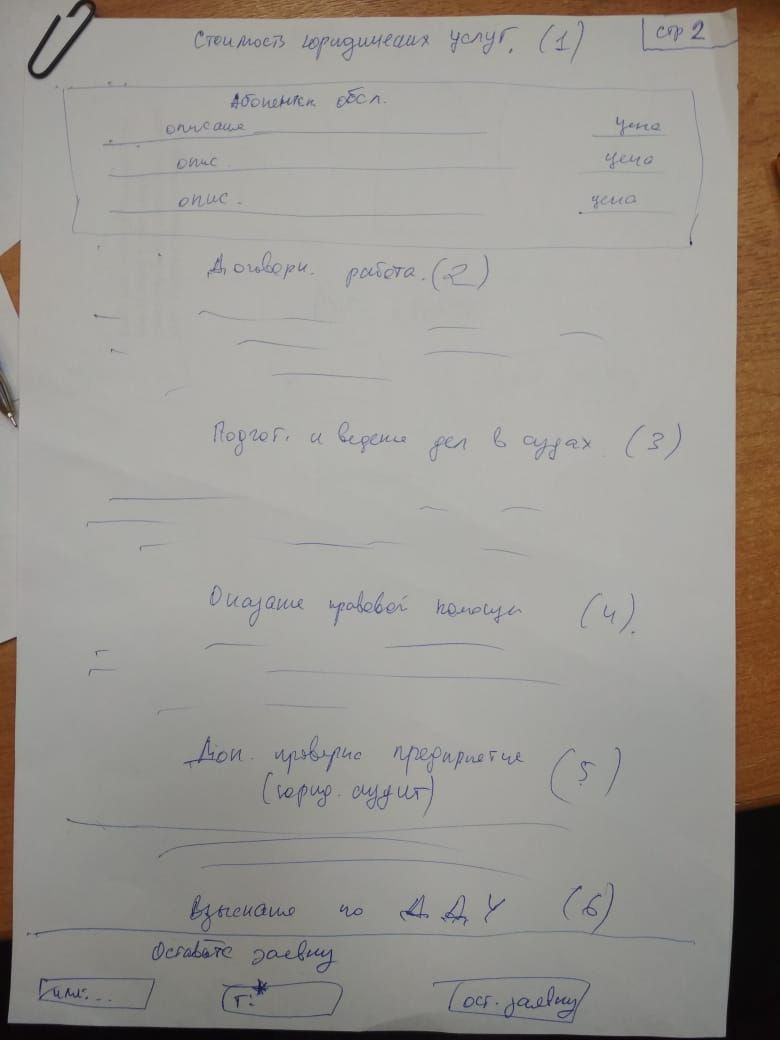 Стоимость юридических услуг. (1)
стр 2
Абонентск. обсл.
описание
цена
опис.
цена
опис.
цена
Договорн. работа. (2)
Подгот. и ведение дел в судах. (3)
Оказание правовой помощи (4).
Доп. проверка предприятие (5)
(юрид. аудит)
Взыскание по ДДУ (6)
Оставьте заявку
имя:...
т:*
ост. заявку